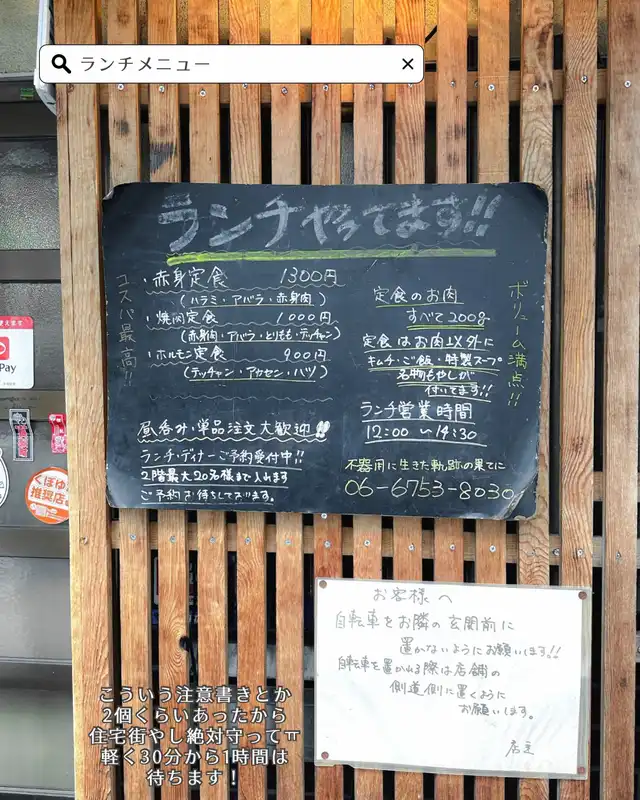 ランチメニュー
ランチやってます!!
コスパ最高!!
・赤身定食 1300円
(ハラミ・アバラ・赤身肉)
・焼肉定食 1000円
(赤身肉・アバラ・とりもも・テッチャン)
・ホルモン定食 900円
(テッチャン・アカセン・ハツ)
昼呑み・単品注文大歓迎!!
ランチ・ディナーご予約受付中!!
2階最大20名様まで入れます
ご予約お待ちしております。
定食のお肉
すべて200g
定食はお肉以外に
キムチ・ご飯・特製スープ
名物もやしが
付いてます!!
ランチ営業時間
12:00 〜14:30
ボリューム満点!!
不器用に生きた軌跡の果てに
06-6753-8030
Pay
くぼゆ
推奨店
お客様へ
自転車をお隣の玄関前に
置かないようにお願いします!!
自転車を置かれる際は店舗の
側道側に置くように
お願いします。
店主
こういう注意書きとか
2個くらいあったから
住宅街やし絶対守ってㅠ
軽く30分から1時間は
待ちます！